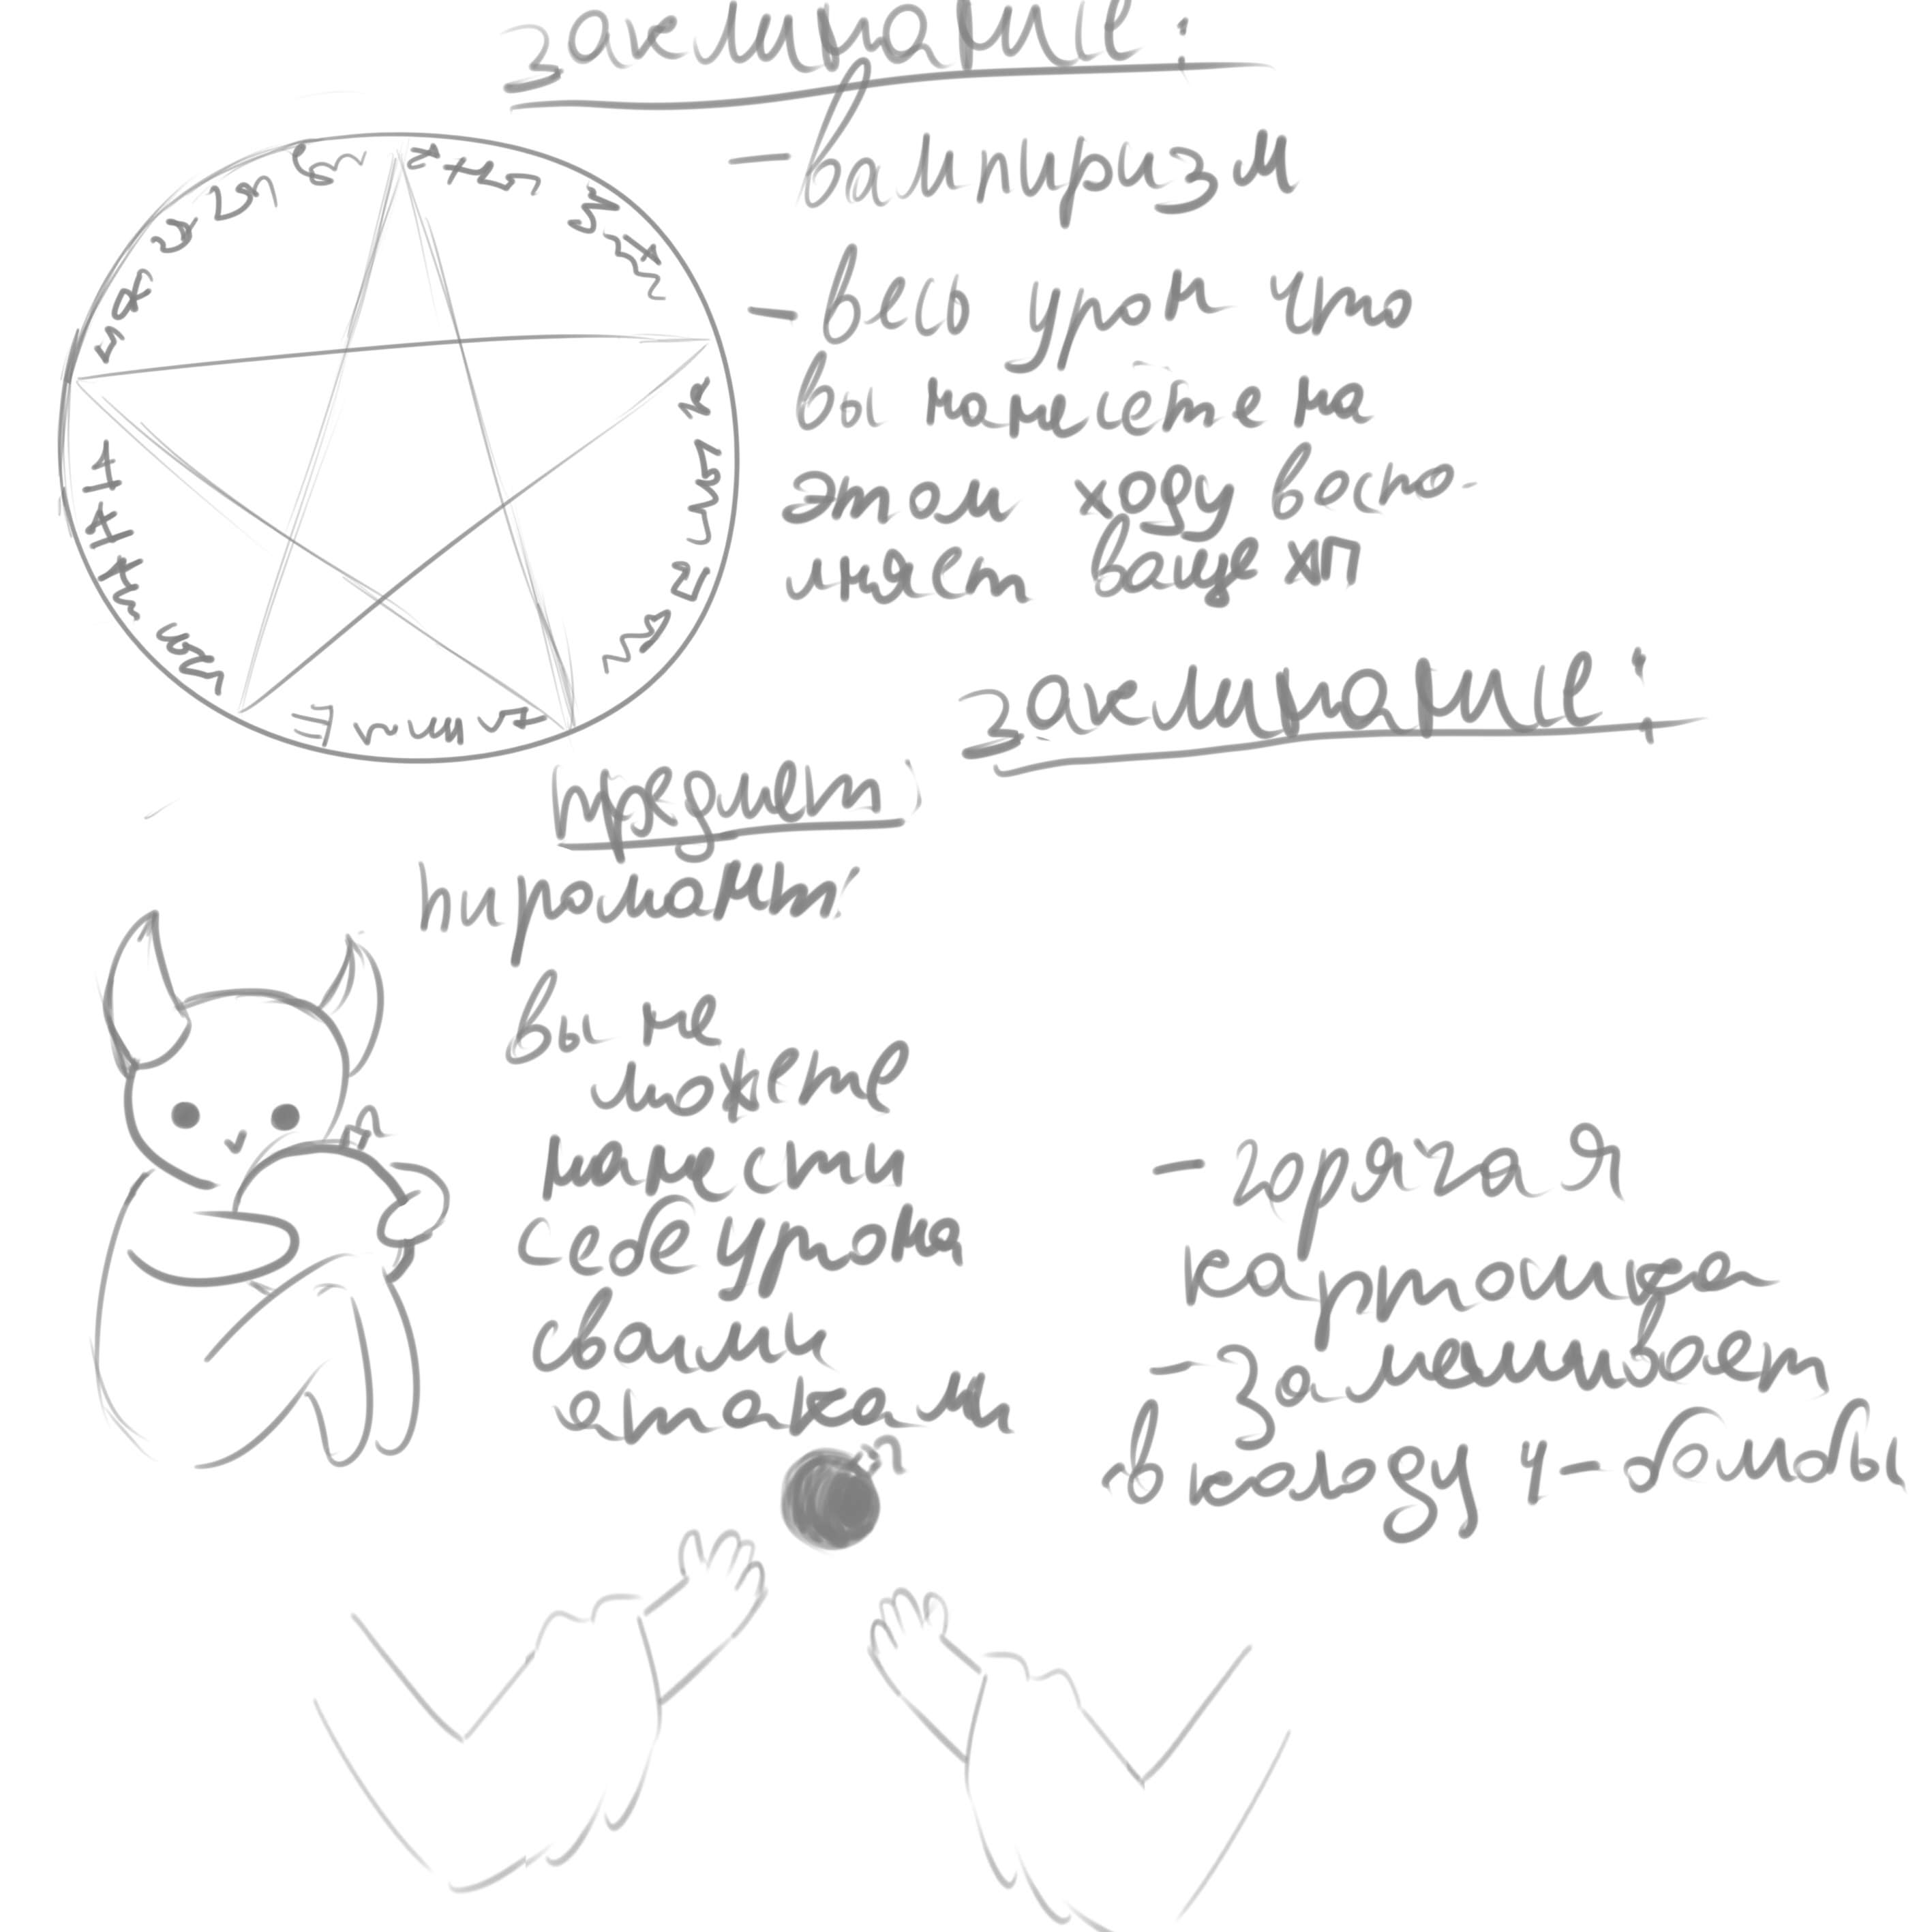 заклинание:
- вампиризм
- весь урон что
вы нанесёте на
этом ходу воспо-
лняет ваше ХП
заклинание:
предмет:
пиромант:
вы не
можете
нанести
себе урона
своими
атаками
- горячая
картошка
- замешивает
в колоду 4-бомбы